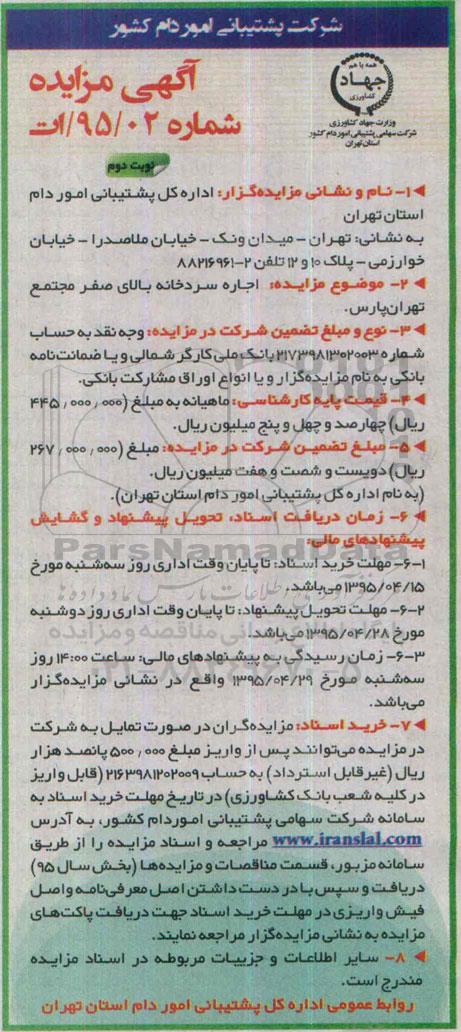 شرکت پشتیبانی امور دام کشور
همه با هم
جهاد
کشاورزی
وزارت جهاد کشاورزی
شرکت سهامی پشتیبانی امور دام کشور
استان تهران
آگهی مزایده
شماره ۹۵/۰۲/ات
نوبت دوم
۱- نام و نشانی مزایده‌گزار: اداره کل پشتیبانی امور دام
استان تهران
به نشانی: تهران - میدان ونک - خیابان ملاصدرا - خیابان
خوارزمی - پلاک ۱۰ و ۱۲ تلفن ۲-۸۸۲۱۶۹۶۱
۲- موضوع مزایده: اجاره سردخانه بالای صفر مجتمع
تهران‌پارس.
۳- نوع و مبلغ تضمین شرکت در مزایده: وجه نقد به حساب
شماره ۲۱۷۳۹۸۱۳۰۲۰۰۳ بانک ملی کارگر شمالی و یا ضمانت‌نامه
بانکی به نام مزایده‌گزار و یا انواع اوراق مشارکت بانکی.
۴- قیمت پایه کارشناسی: ماهیانه به مبلغ (۴۴۵/۰۰۰/۰۰۰
ریال) چهارصد و چهل و پنج میلیون ریال.
۵- مبلغ تضمین شرکت در مزایده: مبلغ (۲۶۷/۰۰۰/۰۰۰
ریال) دویست و شصت و هفت میلیون ریال.
(به نام اداره کل پشتیبانی امور دام استان تهران).
۶- زمان دریافت اسناد، تحویل پیشنهاد و گشایش
پیشنهادهای مالی:
ParsNamadData
۶-۱- مهلت خرید اسناد: تا پایان وقت اداری روز سه‌شنبه مورخ
۱۳۹۵/۰۴/۱۵ می‌باشد.
۶-۲- مهلت تحویل پیشنهاد: تا پایان وقت اداری روز دوشنبه
مورخ ۱۳۹۵/۰۴/۲۸ می‌باشد.
۶-۳- زمان رسیدگی به پیشنهادهای مالی: ساعت ۱۴:۰۰ روز
سه‌شنبه مورخ ۱۳۹۵/۰۴/۲۹ واقع در نشانی مزایده‌گزار
می‌باشد.
۷- خرید اسناد: مزایده‌گران در صورت تمایل به شرکت
در مزایده می‌توانند پس از واریز مبلغ ۵۰۰/۰۰۰ پانصد هزار
ریال (غیرقابل استرداد) به حساب ۲۱۶۳۹۸۱۲۰۲۰۰۹ (قابل واریز
در کلیه شعب بانک کشاورزی) در تاریخ مهلت خرید اسناد به
سامانه شرکت سهامی پشتیبانی امور دام کشور، به آدرس
www.iranslal.com مراجعه و اسناد مزایده را از طریق
سامانه مزبور، قسمت مناقصات و مزایده‌ها (بخش سال ۹۵)
دریافت و سپس با در دست داشتن اصل معرفی‌نامه و اصل
فیش واریزی در مهلت خرید اسناد جهت دریافت پاکت‌های
مزایده به نشانی مزایده‌گزار مراجعه نمایند.
۸- سایر اطلاعات و جزییات مربوطه در اسناد مزایده
مندرج است.
روابط عمومی اداره کل پشتیبانی امور دام استان تهران